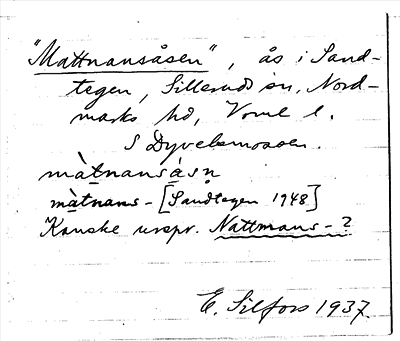 "Mattnansåsen", ås i Sand-
tegen, Sillerud sn, Nord-
marks hd, Vrml l.
S Dyvelsmossen.
màtnansåsn
màtnans- [Sandtegen 1948]
Kanske urspr. Nattmans-?
E. Silfors 1937.